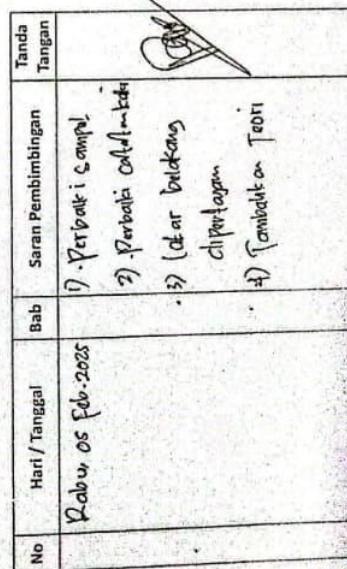 No Hari / Tanggal Bab Saran Pembimbingan Tanda Tangan
Rabu, 05 Feb. 2025
1) Perbaiki sampul
2) Perbaiki catatan kaki
3) Latar belakang
dipertajam
4) Tambahkan Teori